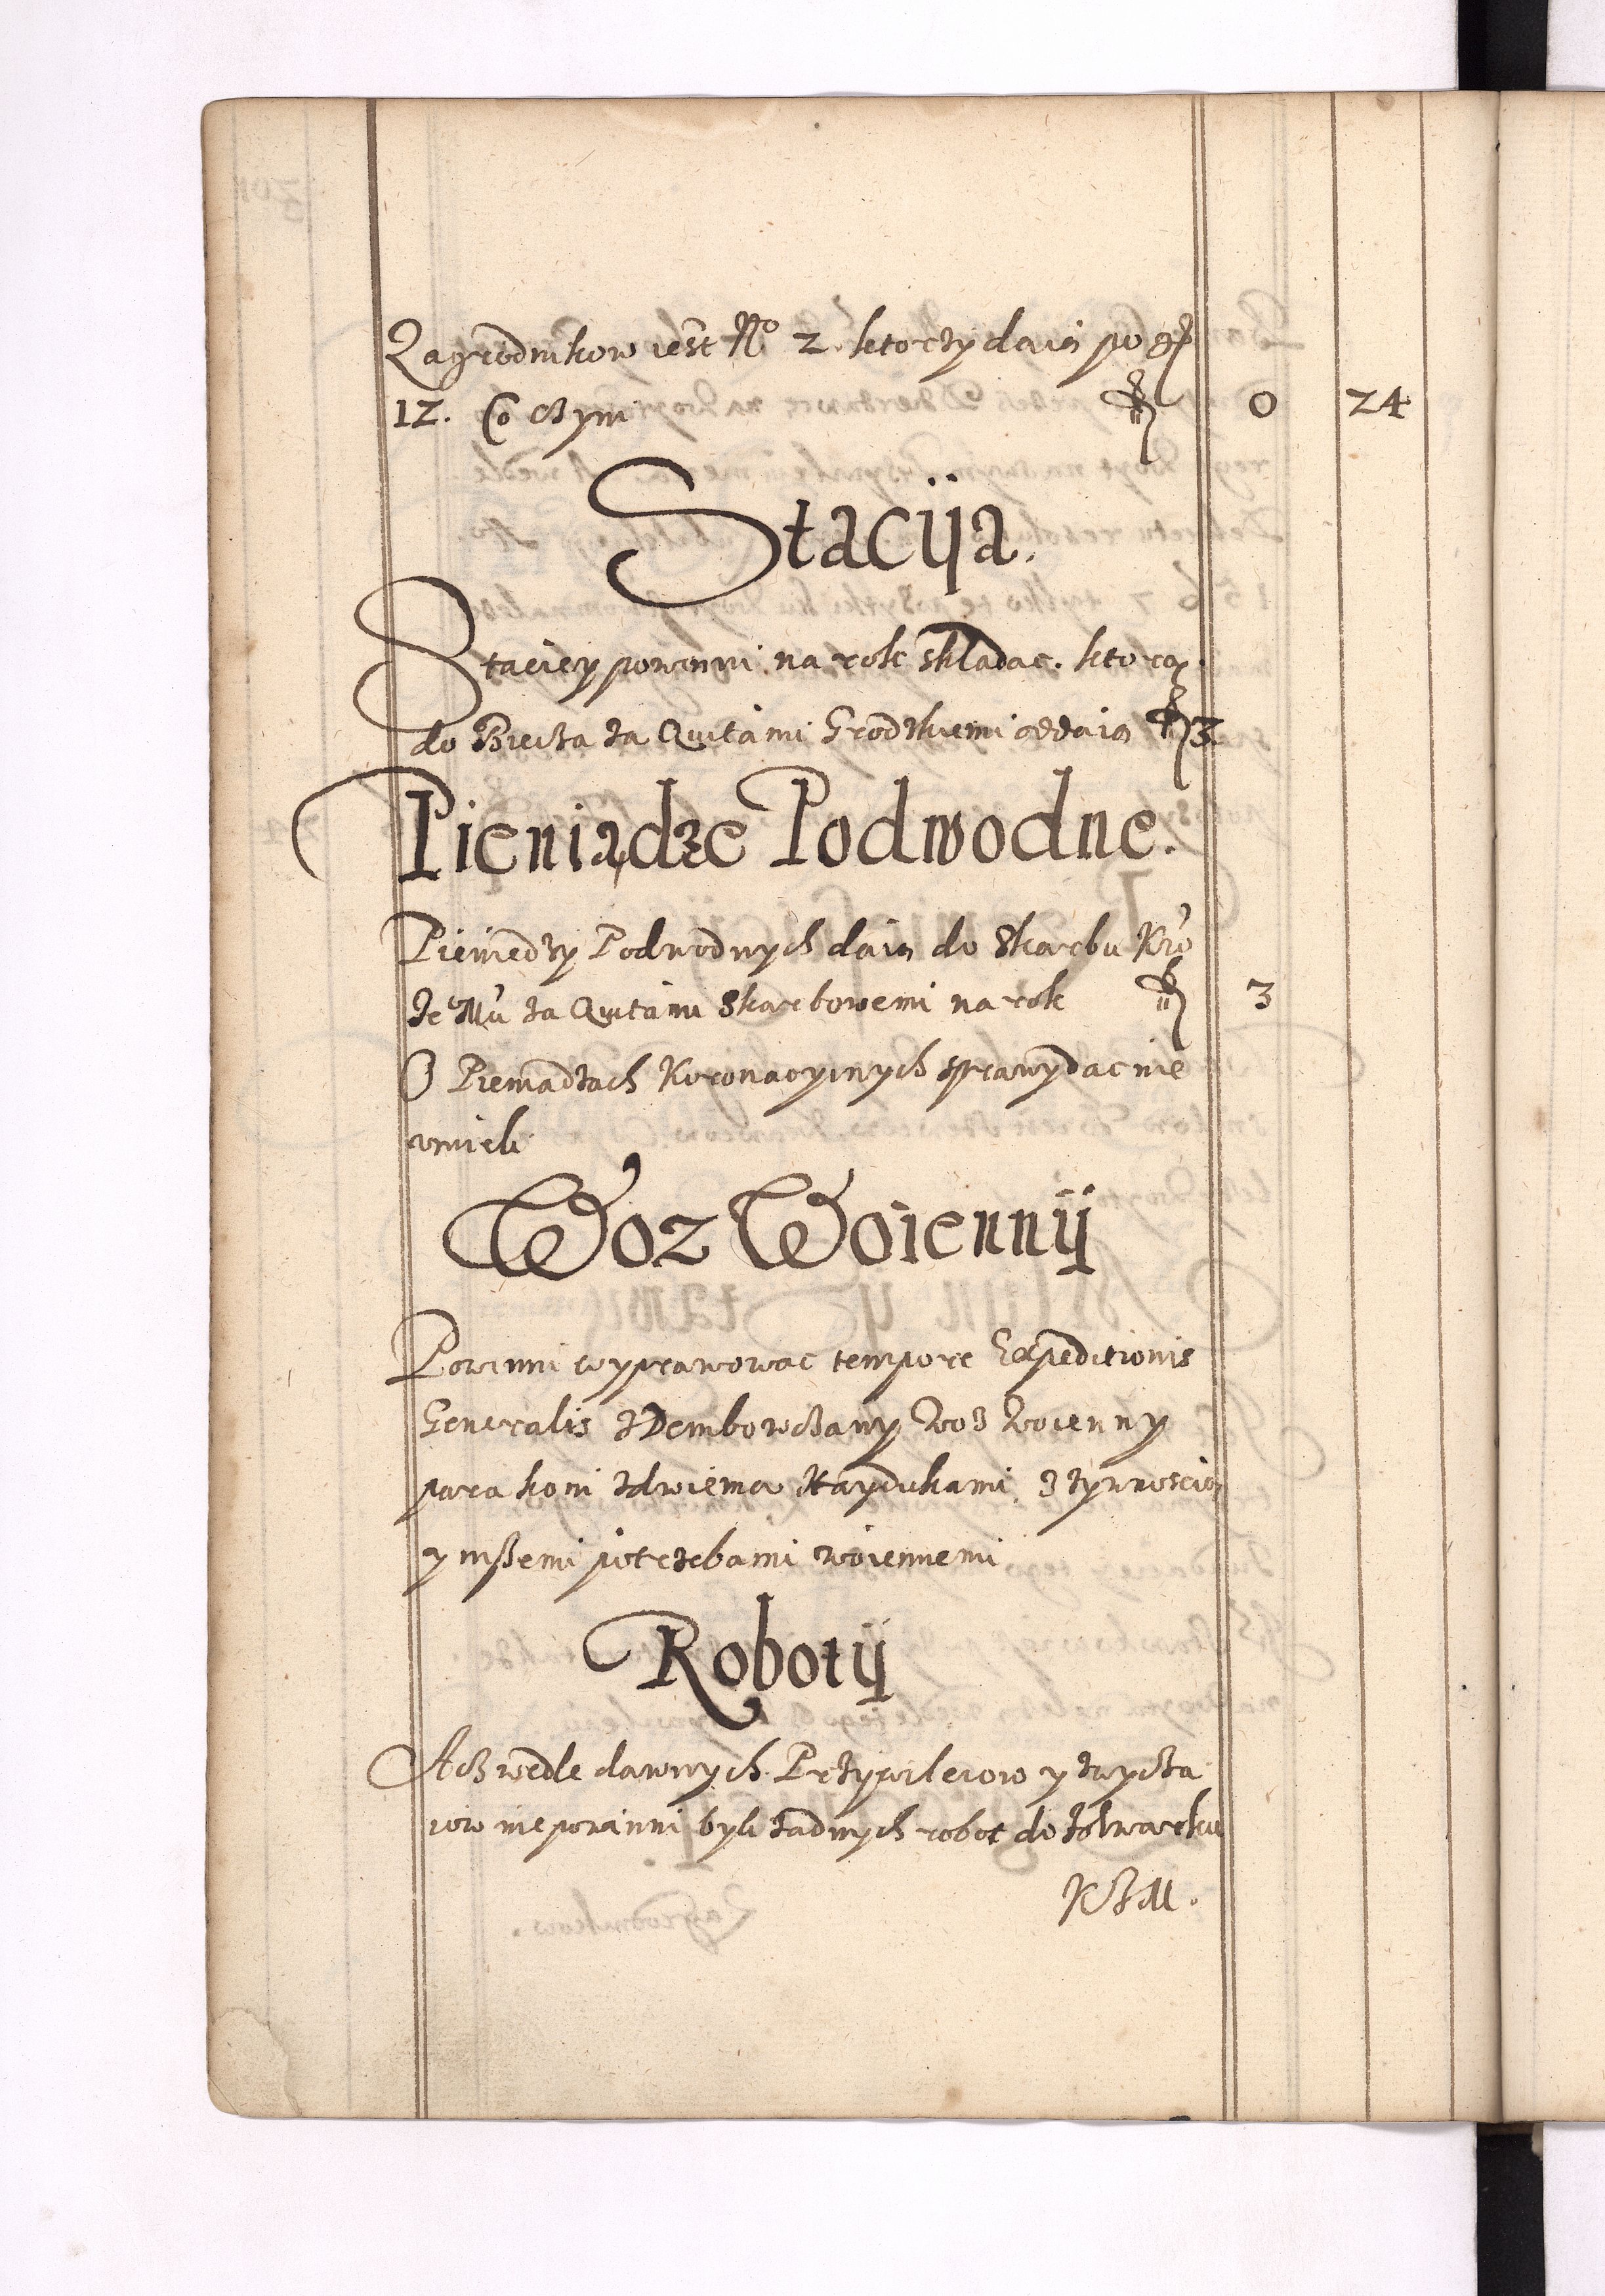 Zagrodnikow iest No 2. ktorzy daią po gr
12. Co czyni fl 0 24
Stacija.
Staciey powinni na rok składac. ktorą
do Biecza za Quitami Grodzkiemi oddaią fl 3
Pieniądze Podwodne.
Pieniedzy Podwodnych daią do Skarbu Kro
Je Mci za Quitami Skarbowemi na rok fl 3
O Pieniadzach Koronacyinych sprawy dac nie
umieli
Woz Woiennij
Powinni wyprawowac tempore Expeditionis
Generalis z Dembowczany Woz Woienny
para koni z dwiema Haydukami, z zywnoscią
y inszemi potrzebami woiennemi
Robotij
Acz wedle dawnych Przywileiow y zwycza
iow niepowinni byli zadnych robot do folwarku
KJM.